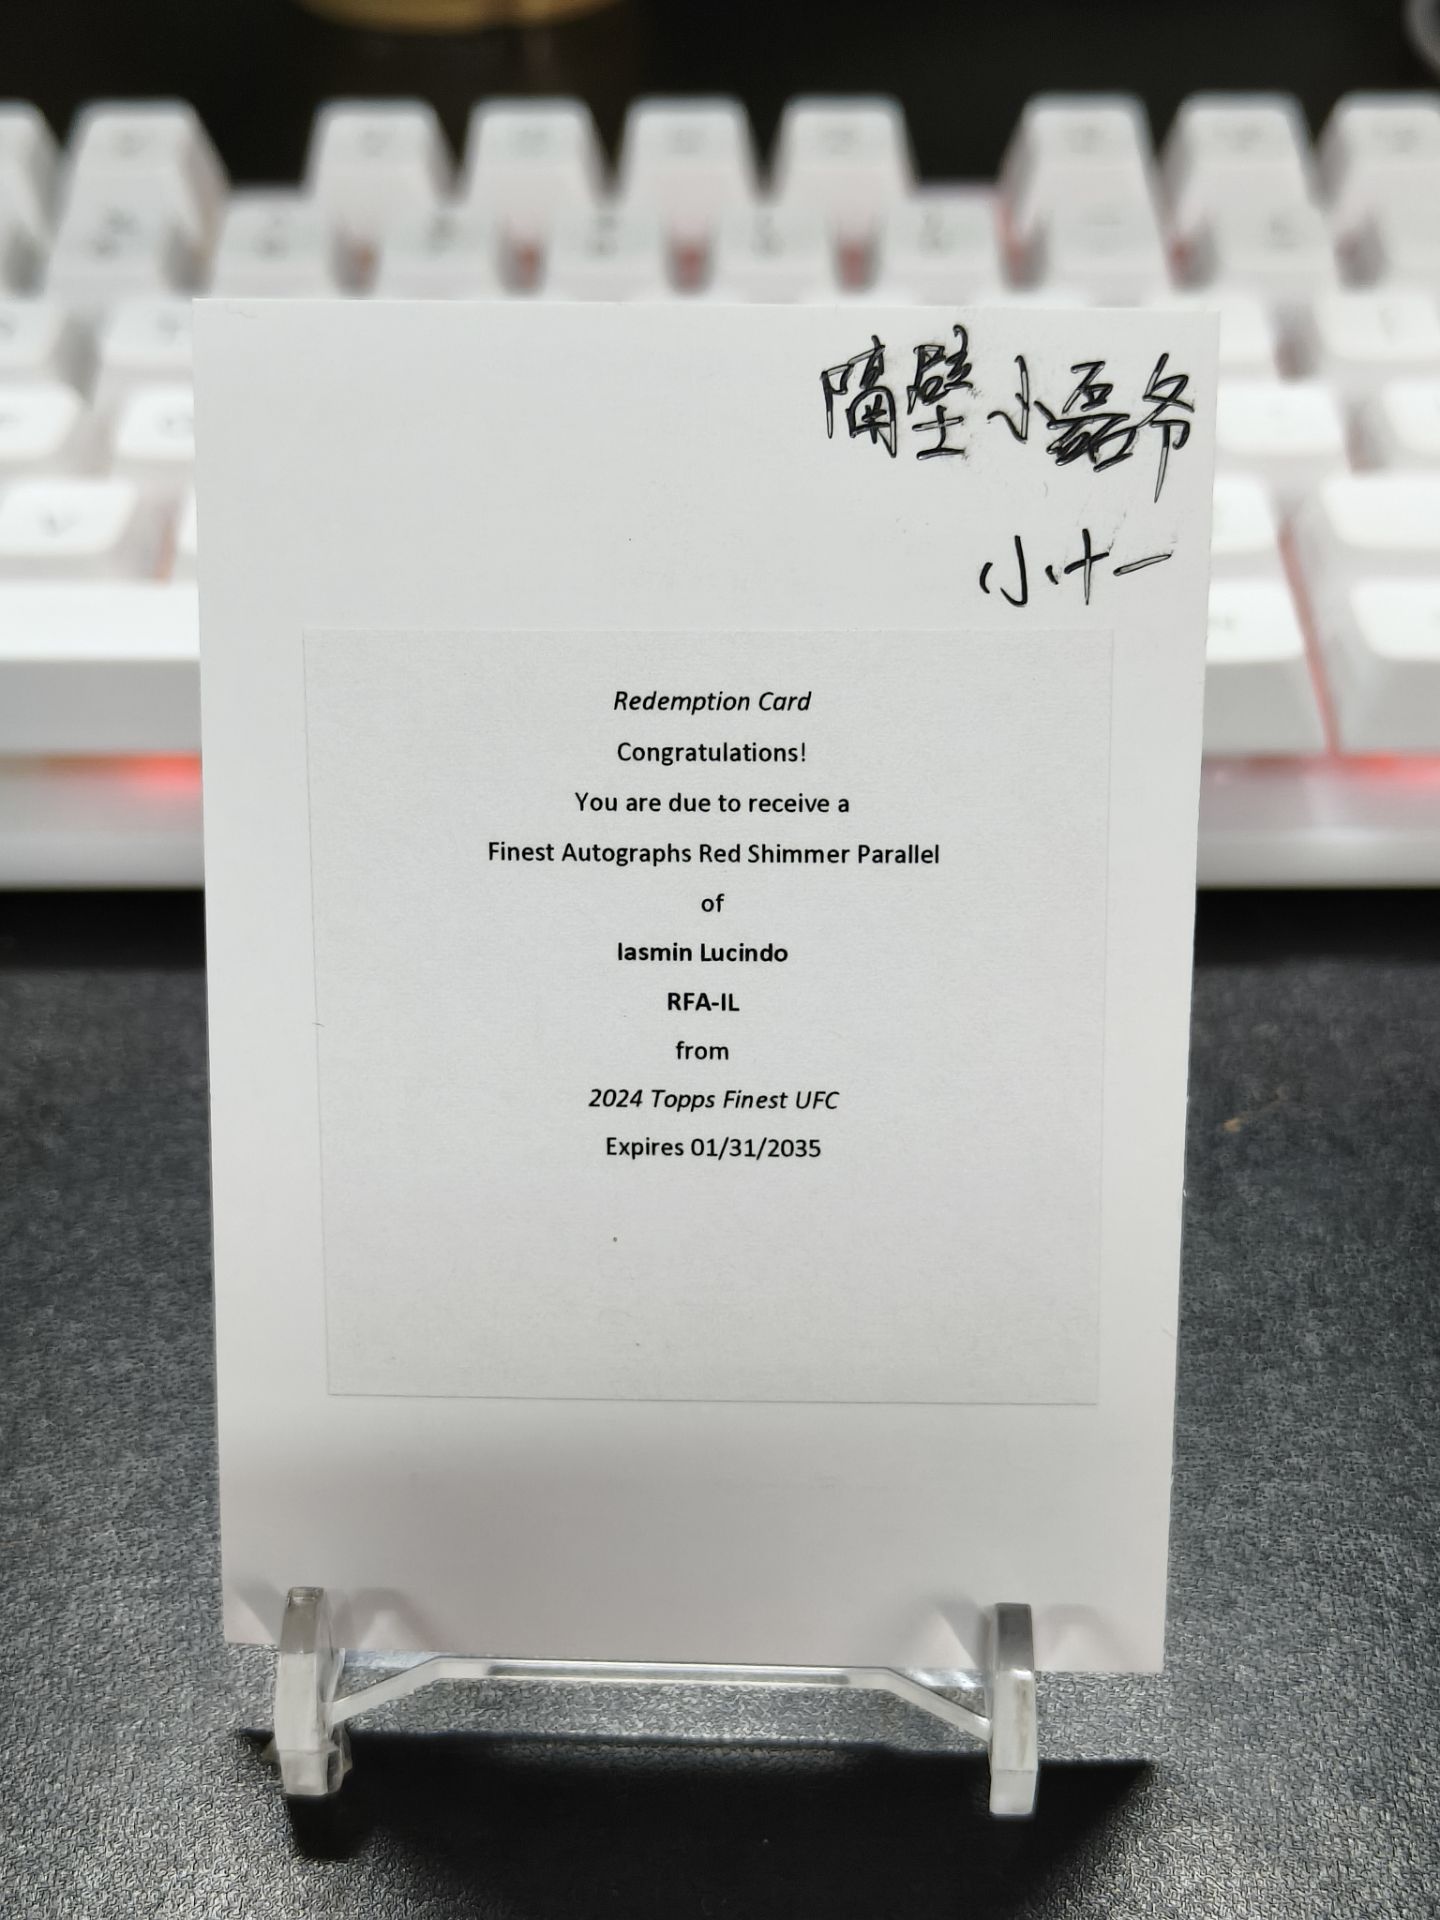 隔壁小磊爷
小十一
Redemption Card
Congratulations!
You are due to receive a
Finest Autographs Red Shimmer Parallel
of
Iasmin Lucindo
RFA-IL
from
2024 Topps Finest UFC
Expires 01/31/2035